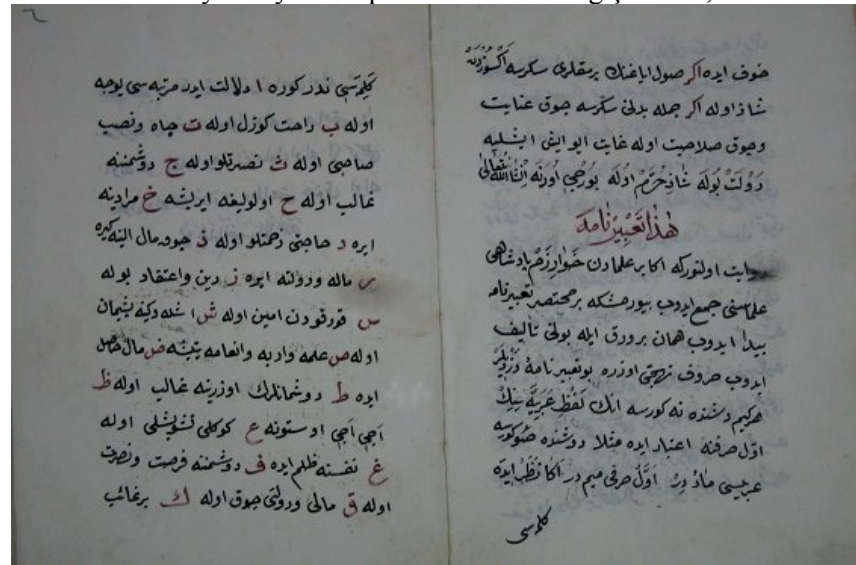 خوف ايده اكر صول اياغنك برمقلرى سكرسه اكسوزدن
شاذ اوله اكر جمله بدنى سكرسه چوق عنايت
وچوق صلاحيت اوله غايت ايو ايش ايشليه
دَوْلَتْ بُولَه شَاذِ خُرَّمْ اولَه بُورجى اُورنَه اِنْشَاءَ اللّٰه تَعَالَى
هٰذا تَعْبِيرْنَامَه
روايت اولنوركه اكابر علمادن خَوَارِزَمْ پادشاهى
علماسنى جمع ايدوب بيورمشكه بر مختصر تعبيرنامه
پيدا ايدوب همان بر ورق ايله بولنى تأليف
ايدوب حروف تهجى اوزره بو تعبير نامهٔ دزديلر
هركيم دشنده نه كورسه انك لَفْظِ عَرَبِيَّه سِنِكْ
اوّل حرفنه اعتبار ايده مثلا دوشنده صُو كورسه
عربيسى مَاءْ دِرْ اَوَّلْ حرفى ميم در اكا نَظَرْ ايدَه
كلمه سى
كَلِمَه سِى ندر كوره ا دلالت ايدر مرتبه سى يوجه
اوله ب راحت كوزل اوله ت جاه ونصب
صاحبى اوله ث نصرتلو اوله ج دوشمننه
غالب اوله ح اولوليغه ايريشه خ مرادينه
ايره د حاجتى زحمتلو اوله ذ چوق مال الينه كيره
ر ماله ودولته ايره ز دين واعتقاد بوله
س قورقودن امين اوله ش اشلدوكينه پشيمان
اوله ص علمه وادبه وانعامه يتيشه ض مال حاصل
ايده ط دوشمانلرك اوزرينه غالب اوله ظ
آجى آجى اوستونه ع كوكلى تشويشلى اوله
غ نفسنه ظلم ايده ف دوشمننه فرصت ونصرت
اوله ق مالى ودولتى چوق اوله ك بر غائب